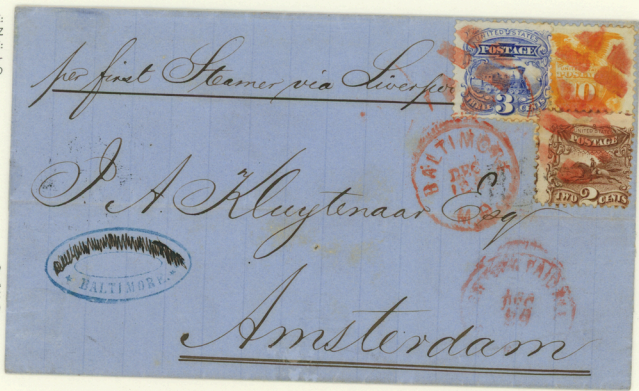 per first Steamer via Liverpool
UNITED STATES
POSTAGE
3 CENTS
10
POSTAGE
TWO 2 CENTS
BALTIMORE
DEC
MD
J A Kluytenaar Esq
BALTIMORE
PAID ALL
DEC
Amsterdam